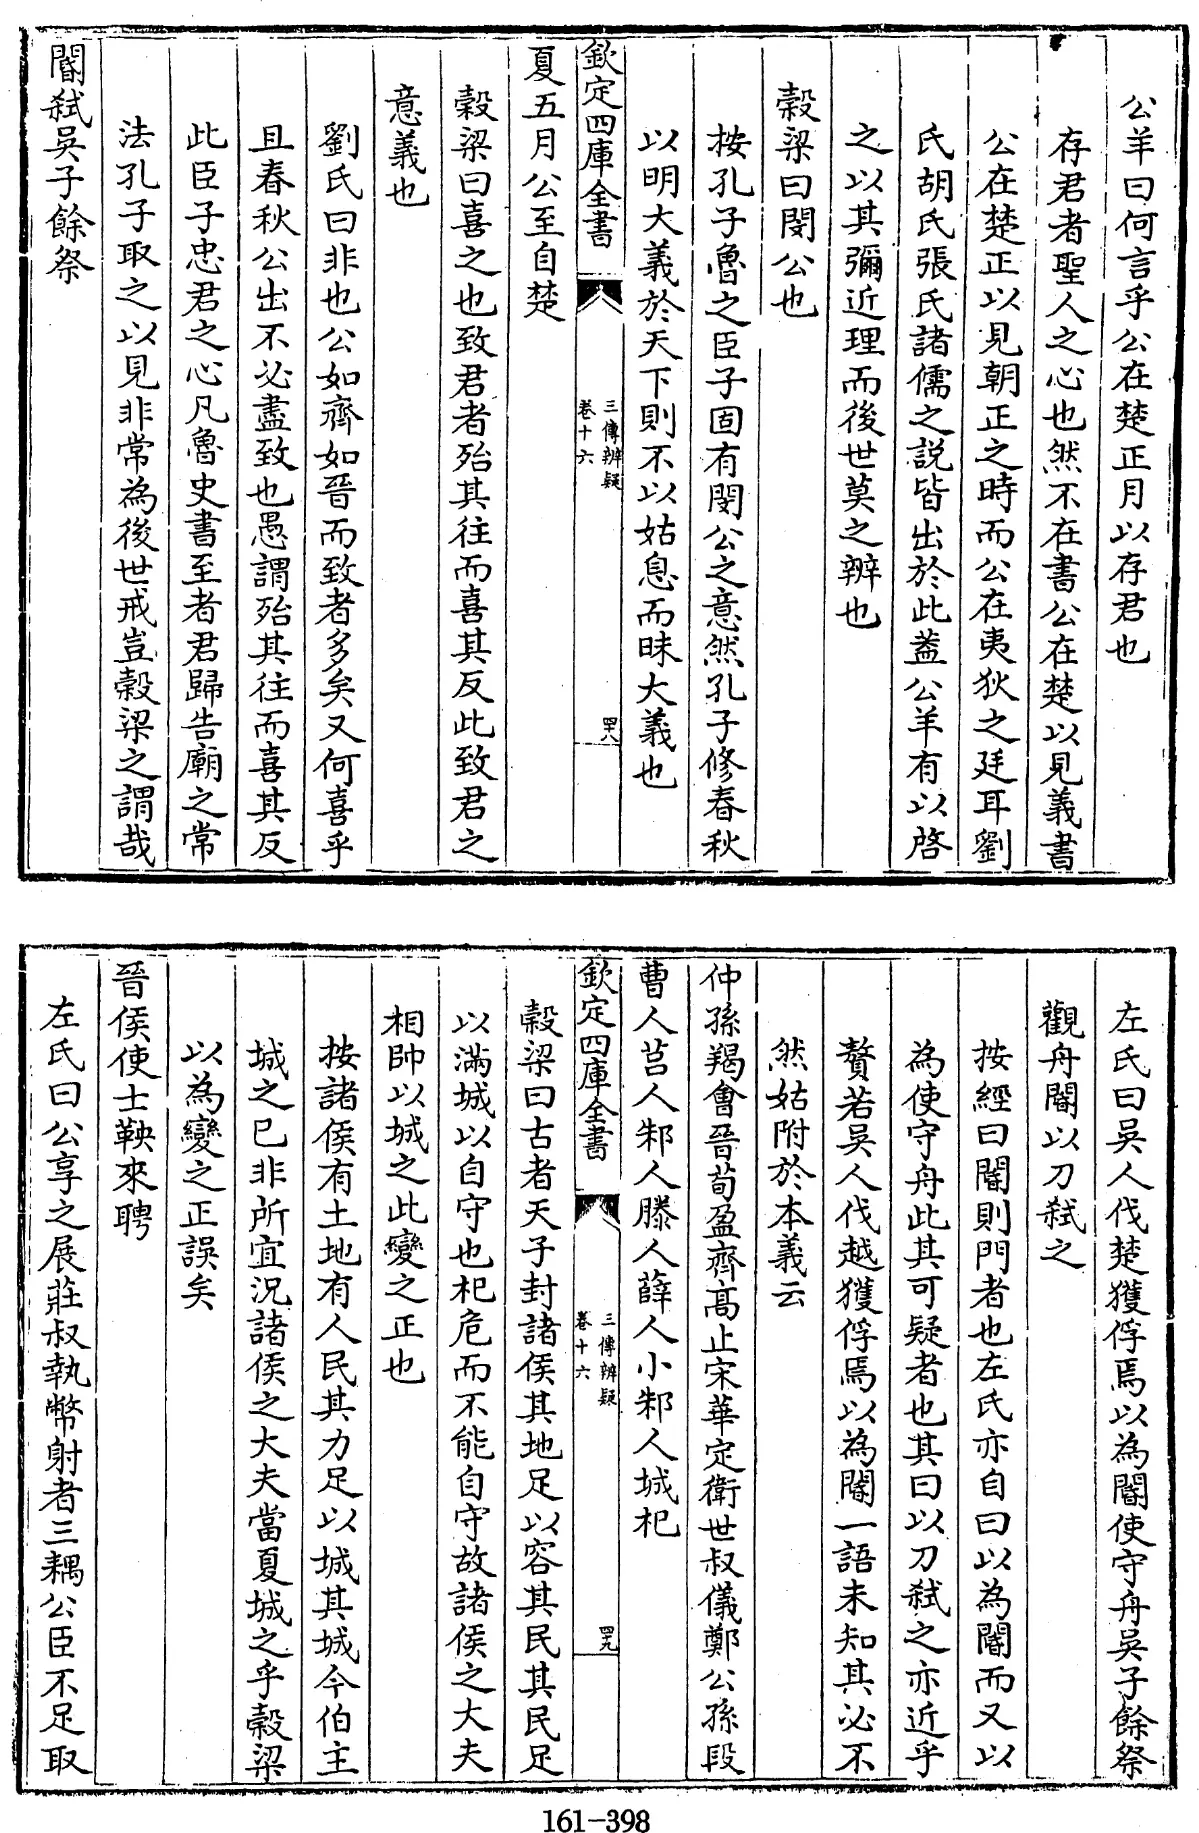 公羊曰何言乎公在楚正月以存君也
存君者聖人之心也然不在書公在楚以見義書
公在楚正以見朝正之時而公在夷狄之廷耳劉
氏胡氏張氏諸儒之説皆出於此蓋公羊有以啓
之以其彌近理而後世莫之辨也
穀梁曰閔公也
按孔子魯之臣子固有閔公之意然孔子修春秋
以明大義於天下則不以姑息而昧大義也
欽定四庫全書
三傳辨疑
卷十六
四十八
夏五月公至自楚
穀梁曰喜之也致君者殆其往而喜其反此致君之
意義也
劉氏曰非也公如齊如晉而致者多矣又何喜乎
且春秋公出不必盡致也愚謂殆其往而喜其反
此臣子忠君之心凡魯史書至者君歸告廟之常
法孔子取之以見非常為後世戒豈穀梁之謂哉
閽弑吳子餘祭
左氏曰吳人伐楚獲俘焉以為閽使守舟吳子餘祭
觀舟閽以刀弑之
按經曰閽則門者也左氏亦自曰以為閽而又以
為使守舟此其可疑者也其曰以刀弑之亦近乎
贅若吳人伐越獲俘焉以為閽一語未知其必不
然姑附於本義云
仲孫羯會晉荀盈齊高止宋華定衛世叔儀鄭公孫段
曹人莒人邾人滕人薛人小邾人城杞
欽定四庫全書
三傳辨疑
卷十六
四十九
穀梁曰古者天子封諸侯其地足以容其民其民足
以滿城以自守也杞危而不能自守故諸侯之大夫
相帥以城之此變之正也
按諸侯有土地有人民其力足以城其城今伯主
城之已非所宜況諸侯之大夫當夏城之乎穀梁
以為變之正誤矣
晉侯使士鞅來聘
左氏曰公享之展莊叔執幣射者三耦公臣不足取
161-398